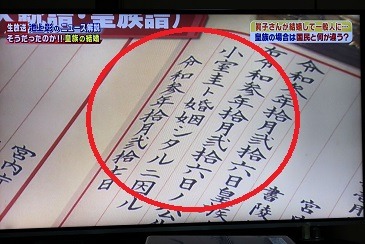 生放送 池上彰のニュース解説
そうだったのか!! 皇族の結婚
眞子さんが結婚して一般人に…
皇族の場合は国民と何が違う?
統譜・皇族譜)
令和
書陵
右令和参年拾月弐拾六日皇族
小室圭ト婚姻シタルニ因ル
令和参年拾月弐拾七日
宮内